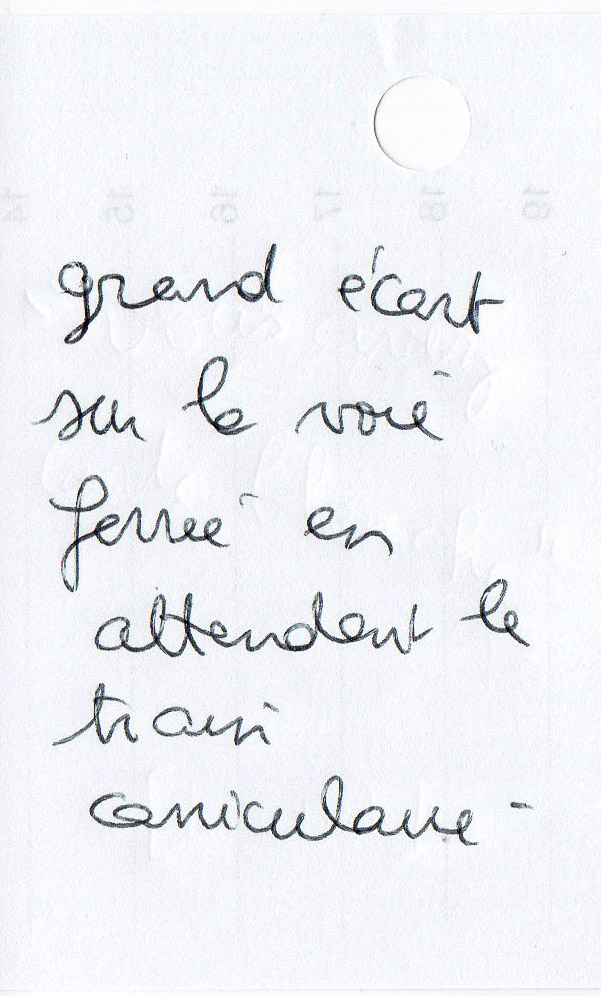 grand écart
sur la voie
ferrée en
attendant le
train
caniculaire -